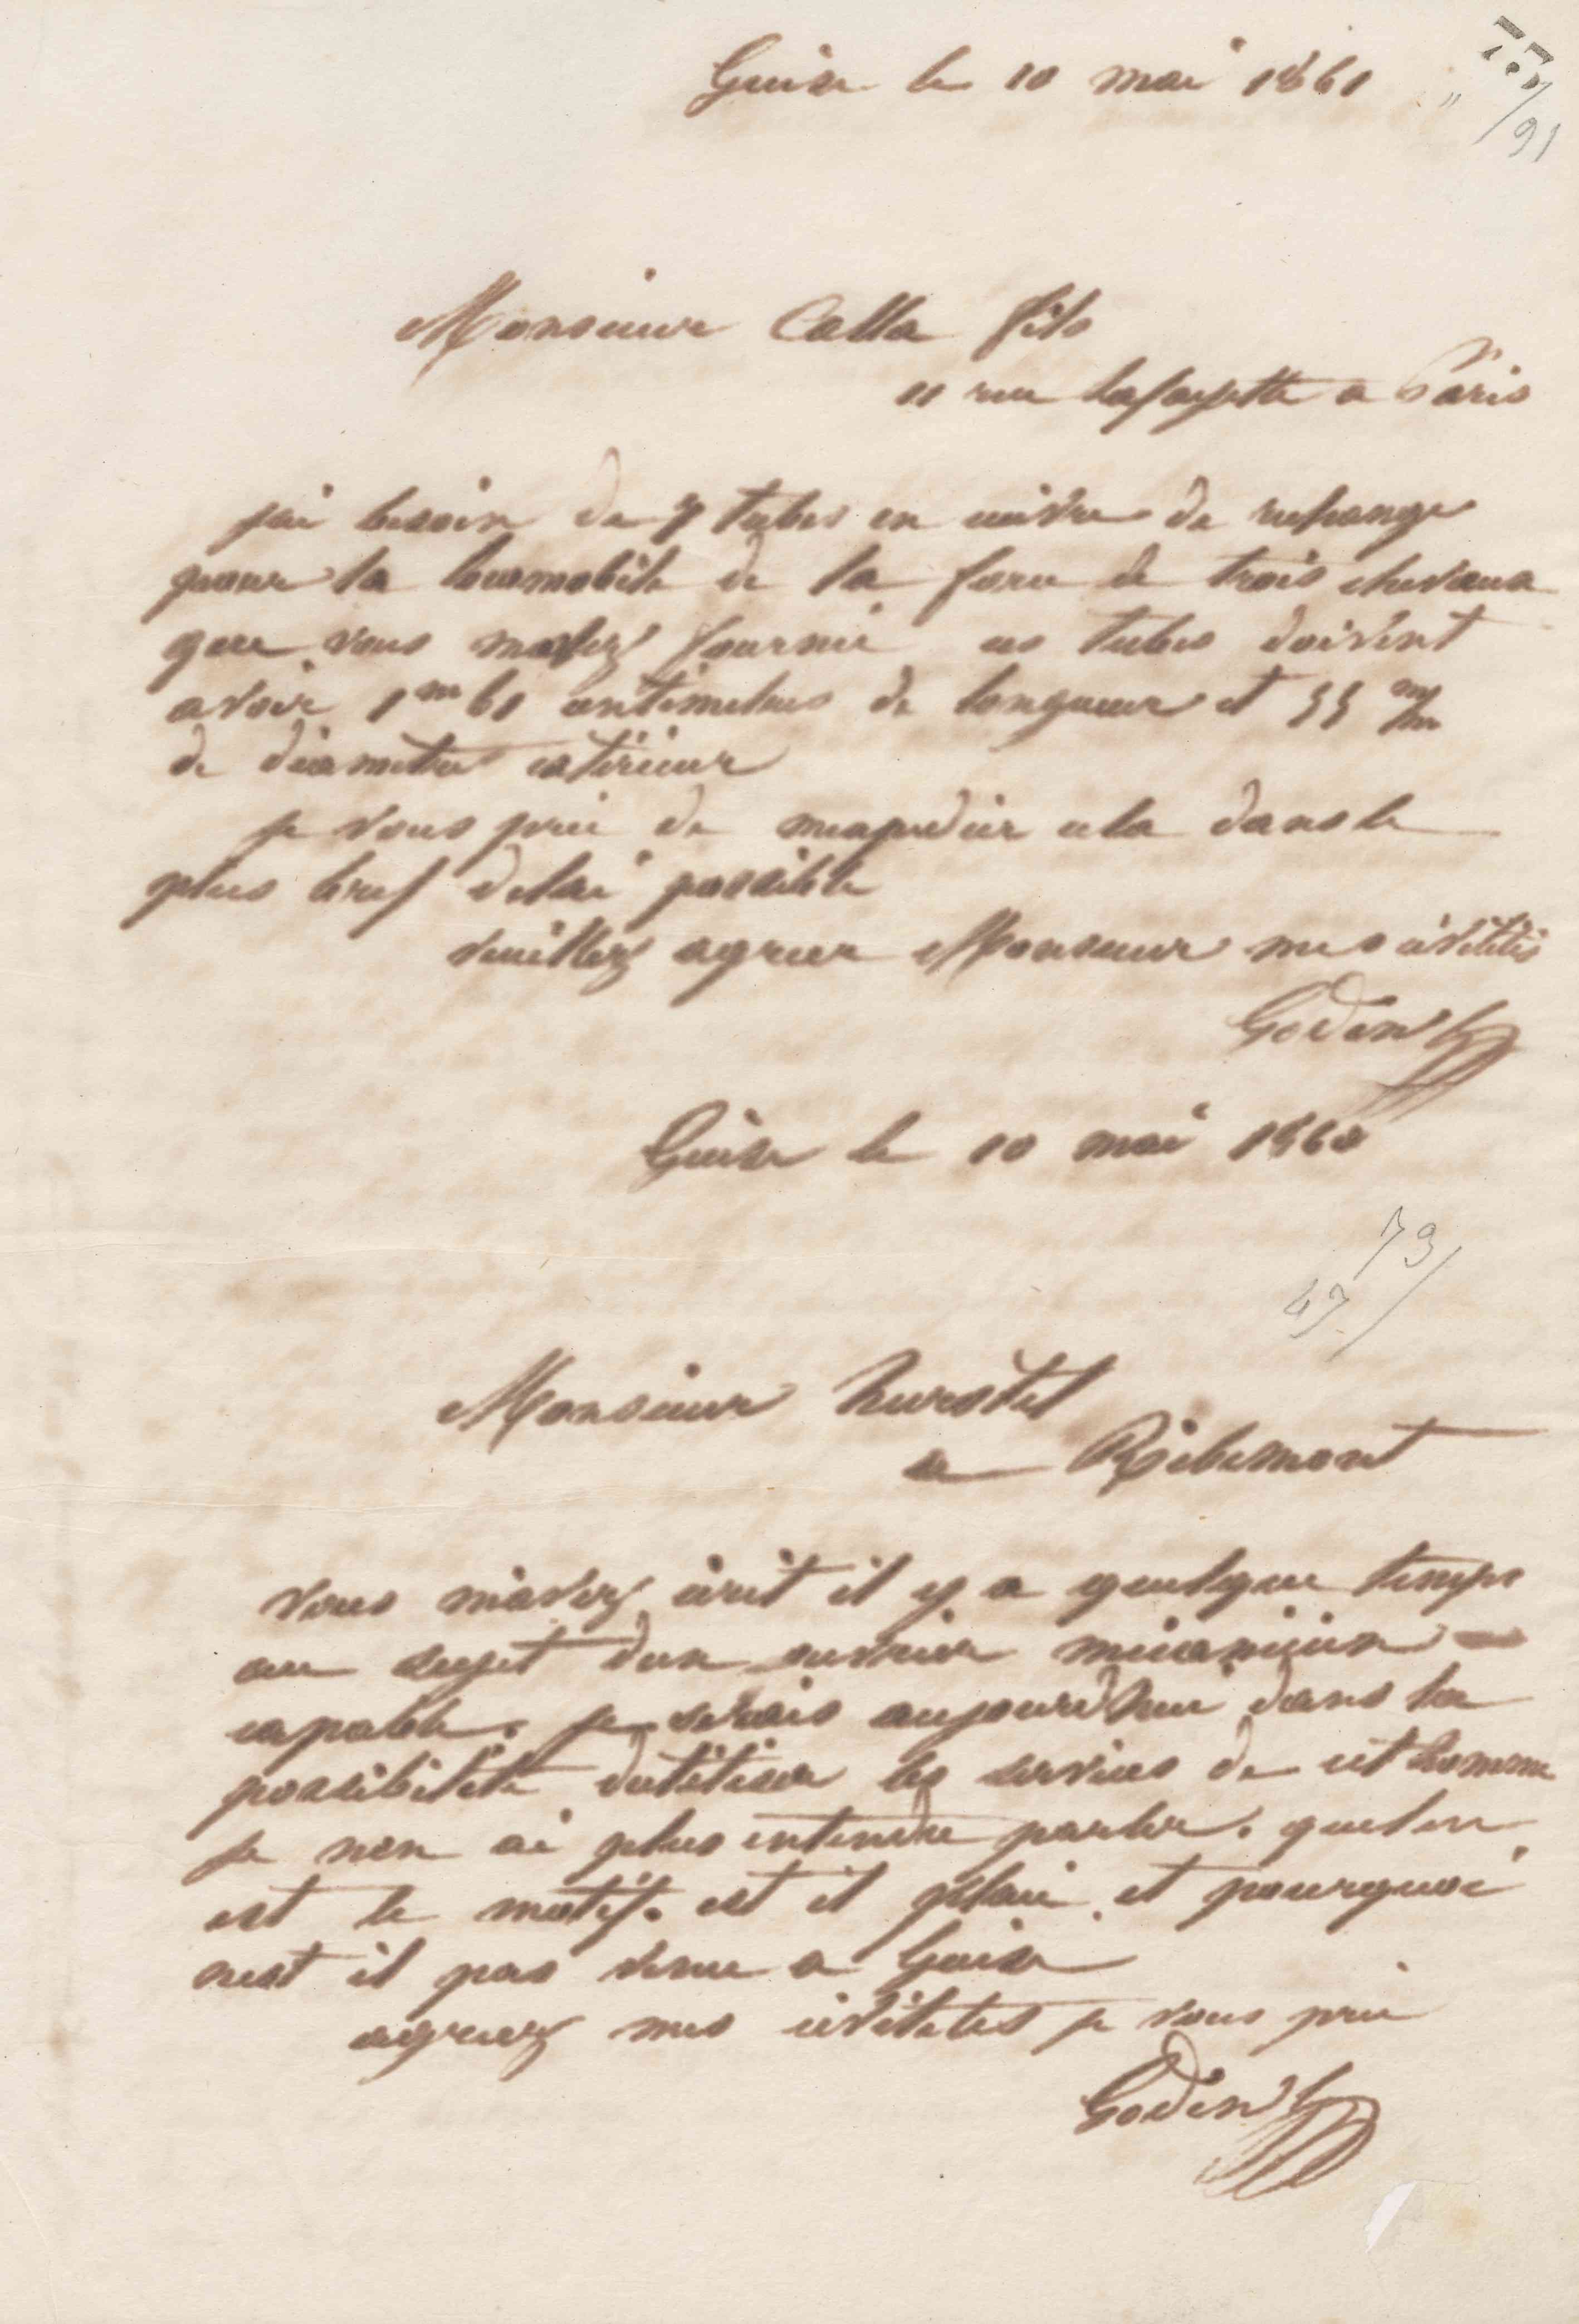 Guise le 10 mai 1861
91
Monsieur Calla fils
11 rue Lafayette a Paris
jai besoin de 7 tubes en cuivre de rechange
pour la locomobile de la force de trois chevaux
que vous mavez fourni ces tubes doivent
avoir 1m 61 centimetres de longueur et 55 m/m
de diametre exterieur
je vous prie de mexpedier cela dans le
plus bref delai possible
veuillez agreer Monsieur mes civilités
Godin
Guise le 10 mai 1860
79
47
Monsieur hurstel
a Ribemont
vous mavez écrit il y a quelque temps
au sujet dun ouvrier mécanicien
capable. je serais aujourdhui dans la
possibilité dutiliser les services de cet homme
je nen ai plus entendu parler. quel en
est le motif. est il placé et pourquoi
nest il pas venu a Guise
agreez mes civilités je vous prie
Godin